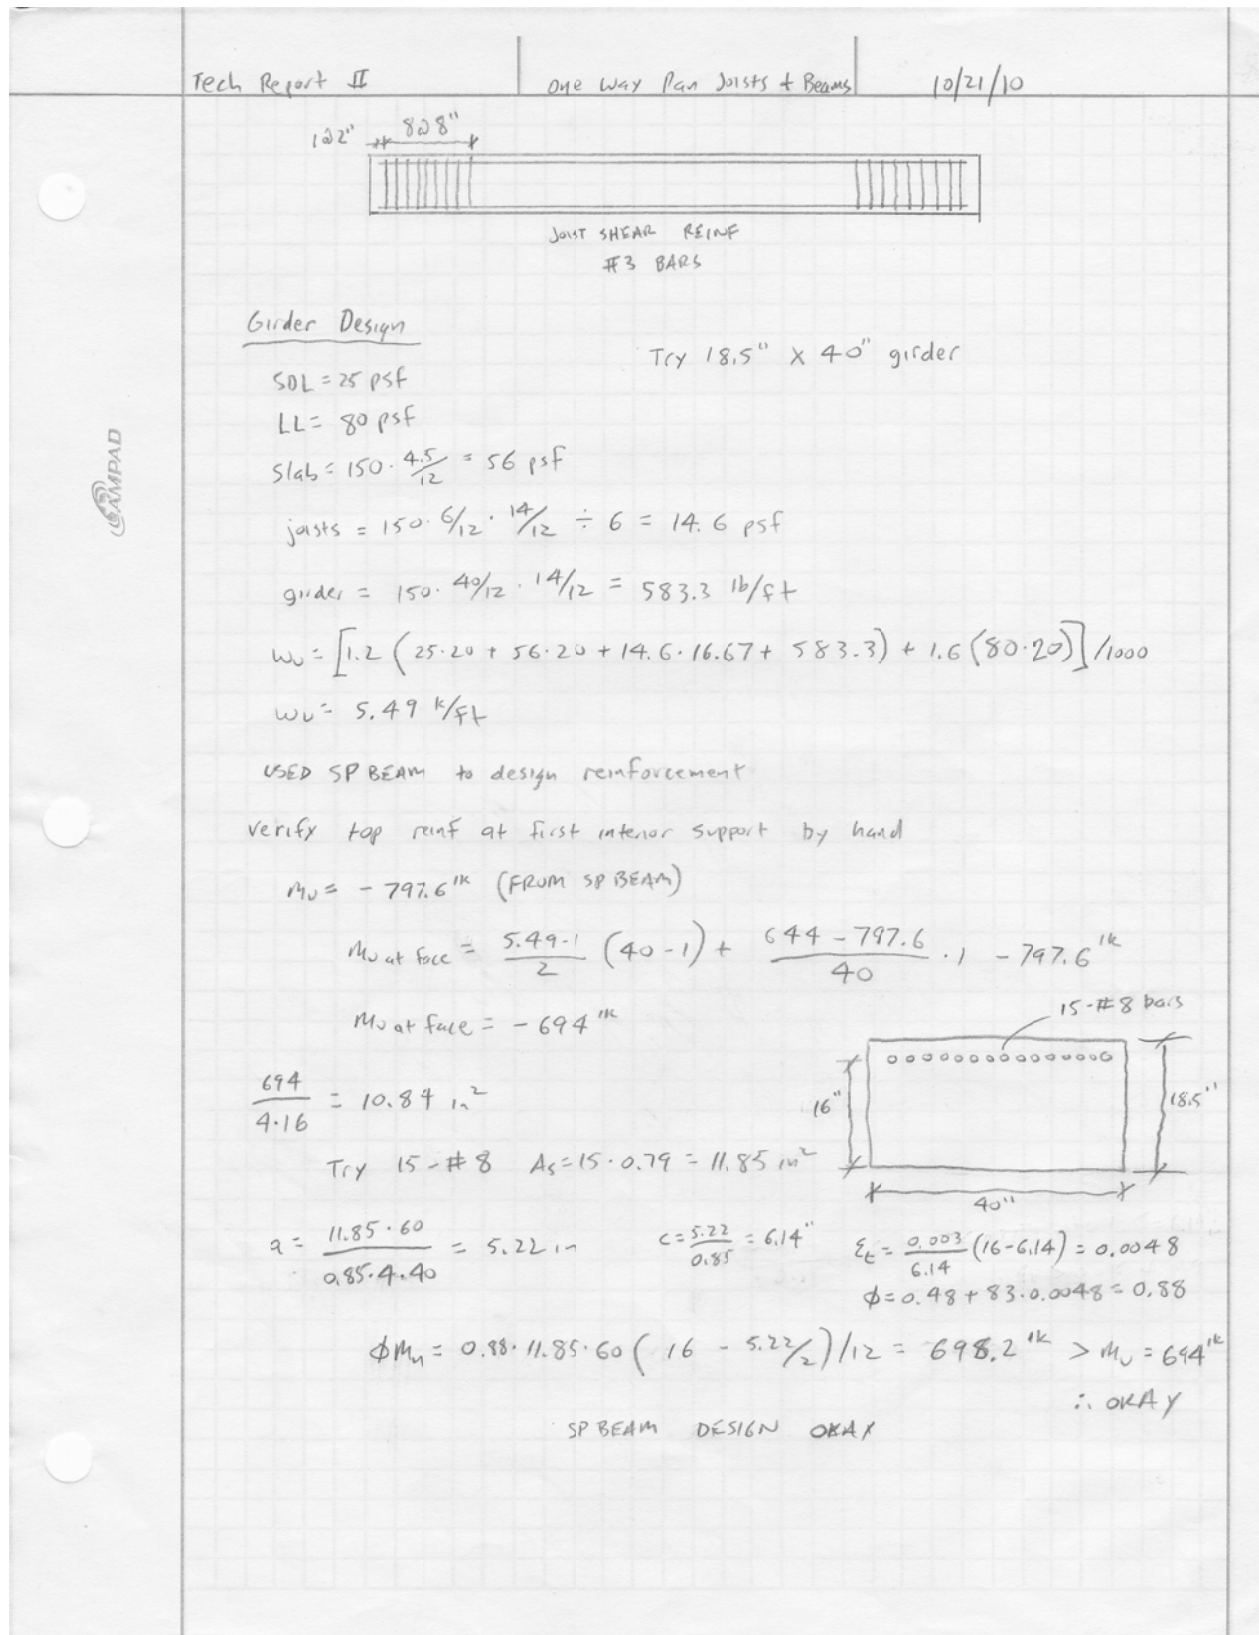 Tech Report II One Way Pan Joists + Beams 10/21/10
1@2" 8@8"
JOIST SHEAR REINF
#3 BARS
Girder Design
Try 18.5" X 40" girder
SDL = 25 psf
LL = 80 psf
Slab = 150 · 4.5/12 = 56 psf
joists = 150 · 6/12 · 14/12 ÷ 6 = 14.6 psf
girder = 150 · 40/12 · 14/12 = 583.3 lb/ft
wu = [1.2 (25·20 + 56·20 + 14.6·16.67 + 583.3) + 1.6 (80·20)] /1000
wu = 5.49 k/ft
USED SP BEAM to design reinforcement
Verify top reinf at first interior support by hand
Mu = - 797.6 'k (FROM SP BEAM)
Mu at face = 5.49·1/2 (40-1) + 644 - 797.6/40 · 1 - 797.6 'k
15-#8 bars
Mu at face = - 694 'k
694/4·16 = 10.84 in²
16"
18.5"
Try 15-#8 As = 15 · 0.79 = 11.85 in²
40"
a = 11.85 · 60/0.85·4·40 = 5.22 in c = 5.22/0.85 = 6.14" εt = 0.003/6.14 (16-6.14) = 0.0048
φ = 0.48 + 83·0.0048 = 0.88
φMn = 0.88 · 11.85 · 60 ( 16 - 5.22/2 ) /12 = 698.2 'k > Mu = 694 'k
∴ OKAY
SP BEAM DESIGN OKAY
AMPAD